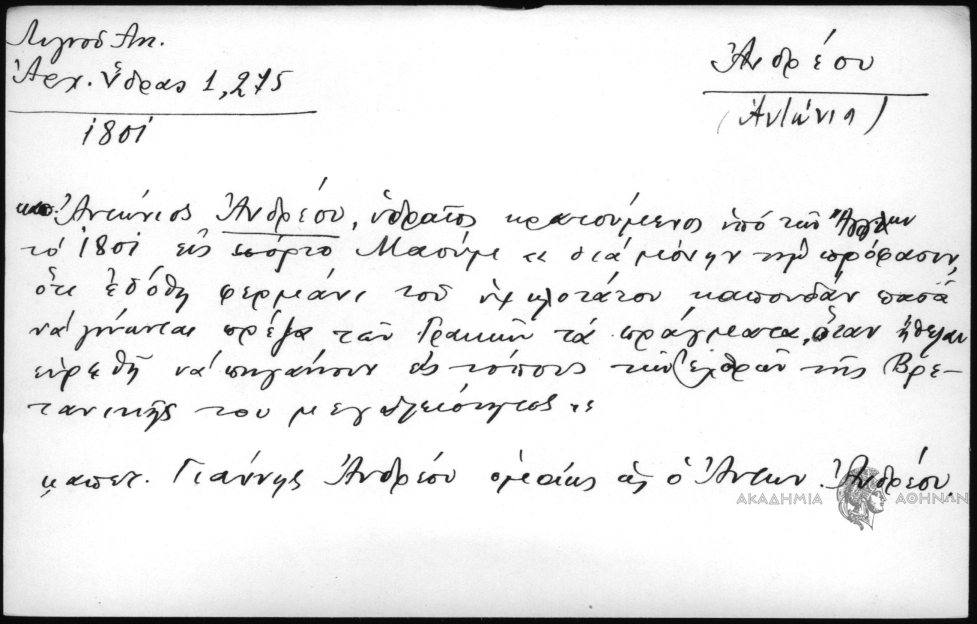 Λιγνοῦ Ἀντ.
Ἀρχ. Ὕδρας 1,275
1801
Ἀνδρέου
(Ἀντώνιος)
καπ. Ἀντώνιος Ἀνδρέου, ὑδραῖος κρατούμενος ὑπό τῶν Ἄγγλων
τό 1801 εἰς πόρτο Μαούμε "διά μόνην τήν πρόφασιν,
ὅτι ἐδόθη φερμάνι τοῦ ὑψηλοτάτου καπουδάν πασᾶ
νά γίνωνται πρέζα τῶν Γραικῶν τά πράγματα, ὅταν ἤθελαν
εὑρεθῆ νά πηγαίνουν εἰς τόπους τῶν ἐχθρῶν τῆς Βρε-
τανικῆς του μεγαλειότητος"
καπετ. Γιάννης Ἀνδρέου ὁμοίως ὡς ὁ Ἀντών. Ἀνδρέου.
ΑΚΑΔΗΜΙΑ ΑΘΗΝΩΝ